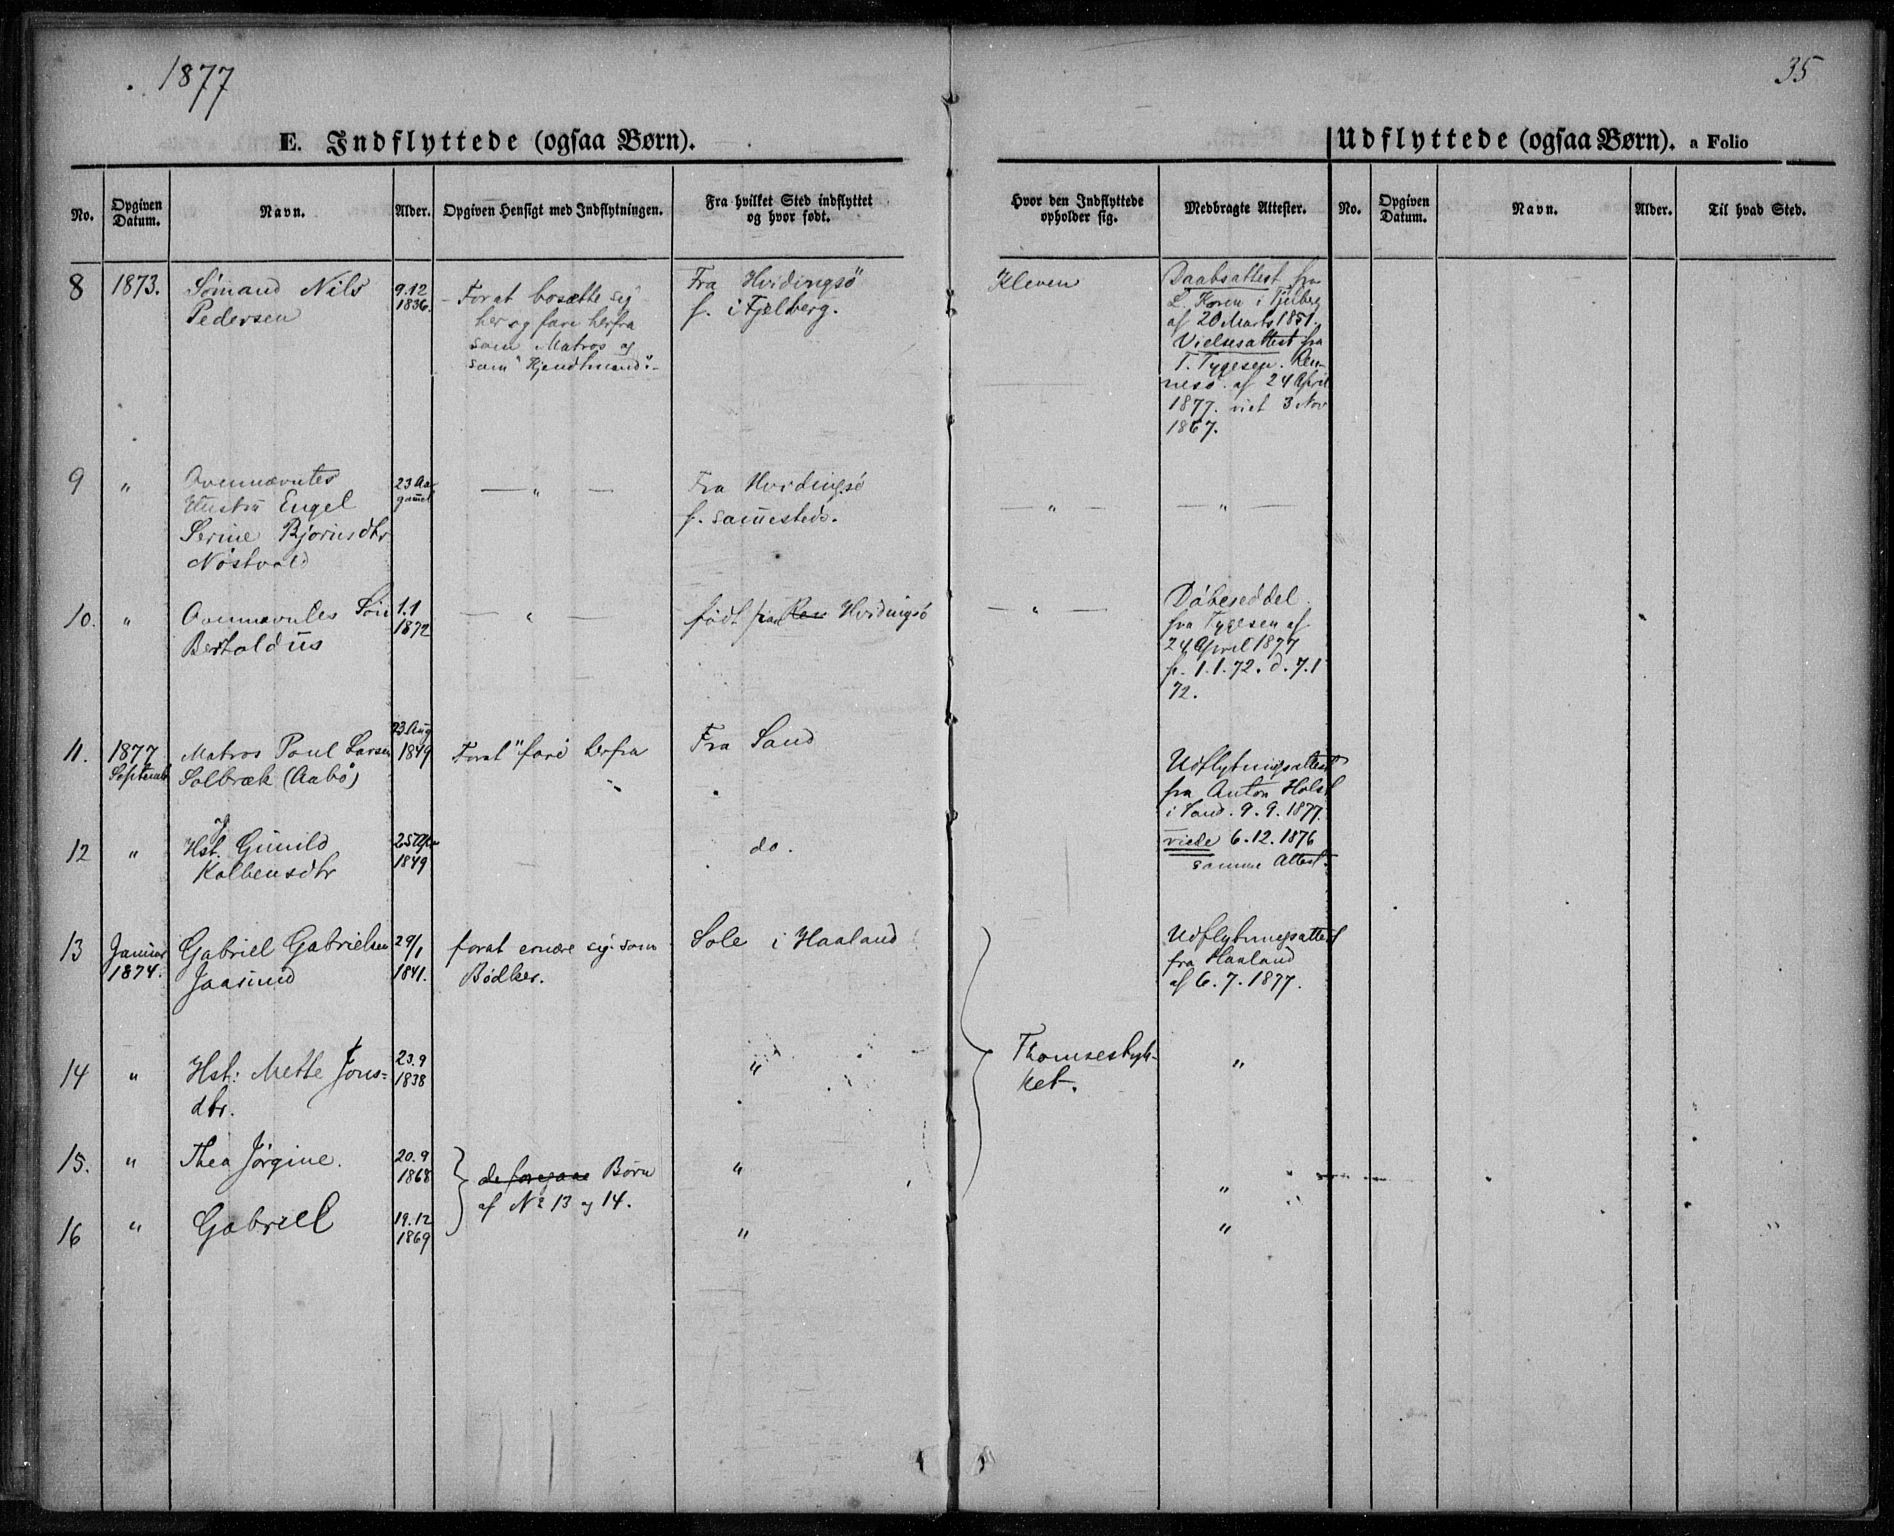 1877
35
E. Indflyttede (ogsaa Børn).
Udflyttede (ogsaa Børn). a Folio
No.
Opgiven Datum.
Navn.
Alder.
Opgiven Hensigt med Indflytningen.
Fra hvilket Sted indflyttet
og hvor født.
Hvor den Indflyttede
opholder sig.
Medbragte Attester.
No.
Opgiven Datum.
Navn.
Alder.
Til hvad Sted.
8
1873.
Sömand Nils
Pedersen
9.12
1836.
For at bosætte sig
her og fare herfra
som Matros og
som "Kjendtmand".-
Fra Hvidingsö
f. i Fjelberg.
Kleven
Daabsattest fra
L. Koren i Fjelberg
af 20 Marts 1851.
Vielsesattest fra
T. Tygesen. Ren-
nesö. af 24 April
1877. viet 3 Nov
1867.
9
"
Ovennævntes
Hustru Engel
Serine Bjørnsdtr
Nöstvold
23 Aar
gamel
— " —
Fra Hvidingsö
f. sammesteds.
— " —
— " —
10.
"
Ovennævntes Sön
Bertoldus
1.1
1872
— " —
født fra Ren Hvidingsö
— " —
Döbeseddel
fra Tygesen af
24 April 1877
f. 1.1.72. d. 7.1
72.
11.
1877
Septemb
Matros Poul Larsen
Solbræk (Aabö)
23 Aug
1849
Forat "fare herfra
Fra Sand
Udflytningsattest
fra Anton Holst
i Sand. 9.9.1877.
12
"
Hst. Gunild
Kolbensdtr
25 Apr
1849
do.
viede 6.12.1876
samme Attest.
13
Januar
1874.
Gabriel Gabrielsen
Jaasund
29/1
1841.
forat ernære sig som
Bödker.
Sole i Haaland
Udflytningsattest
fra Haaland
af 6.7.1877.
14
"
Hst: Mette Jons=
dtr.
23.9
1838
"
Thomsestyk-
ket.
"
15.
"
Thea Jørgine.
20.9
1868
de foregaae Børn
af No 13 og 14.
"
"
16
"
Gabriel
19.12
1869
"
"